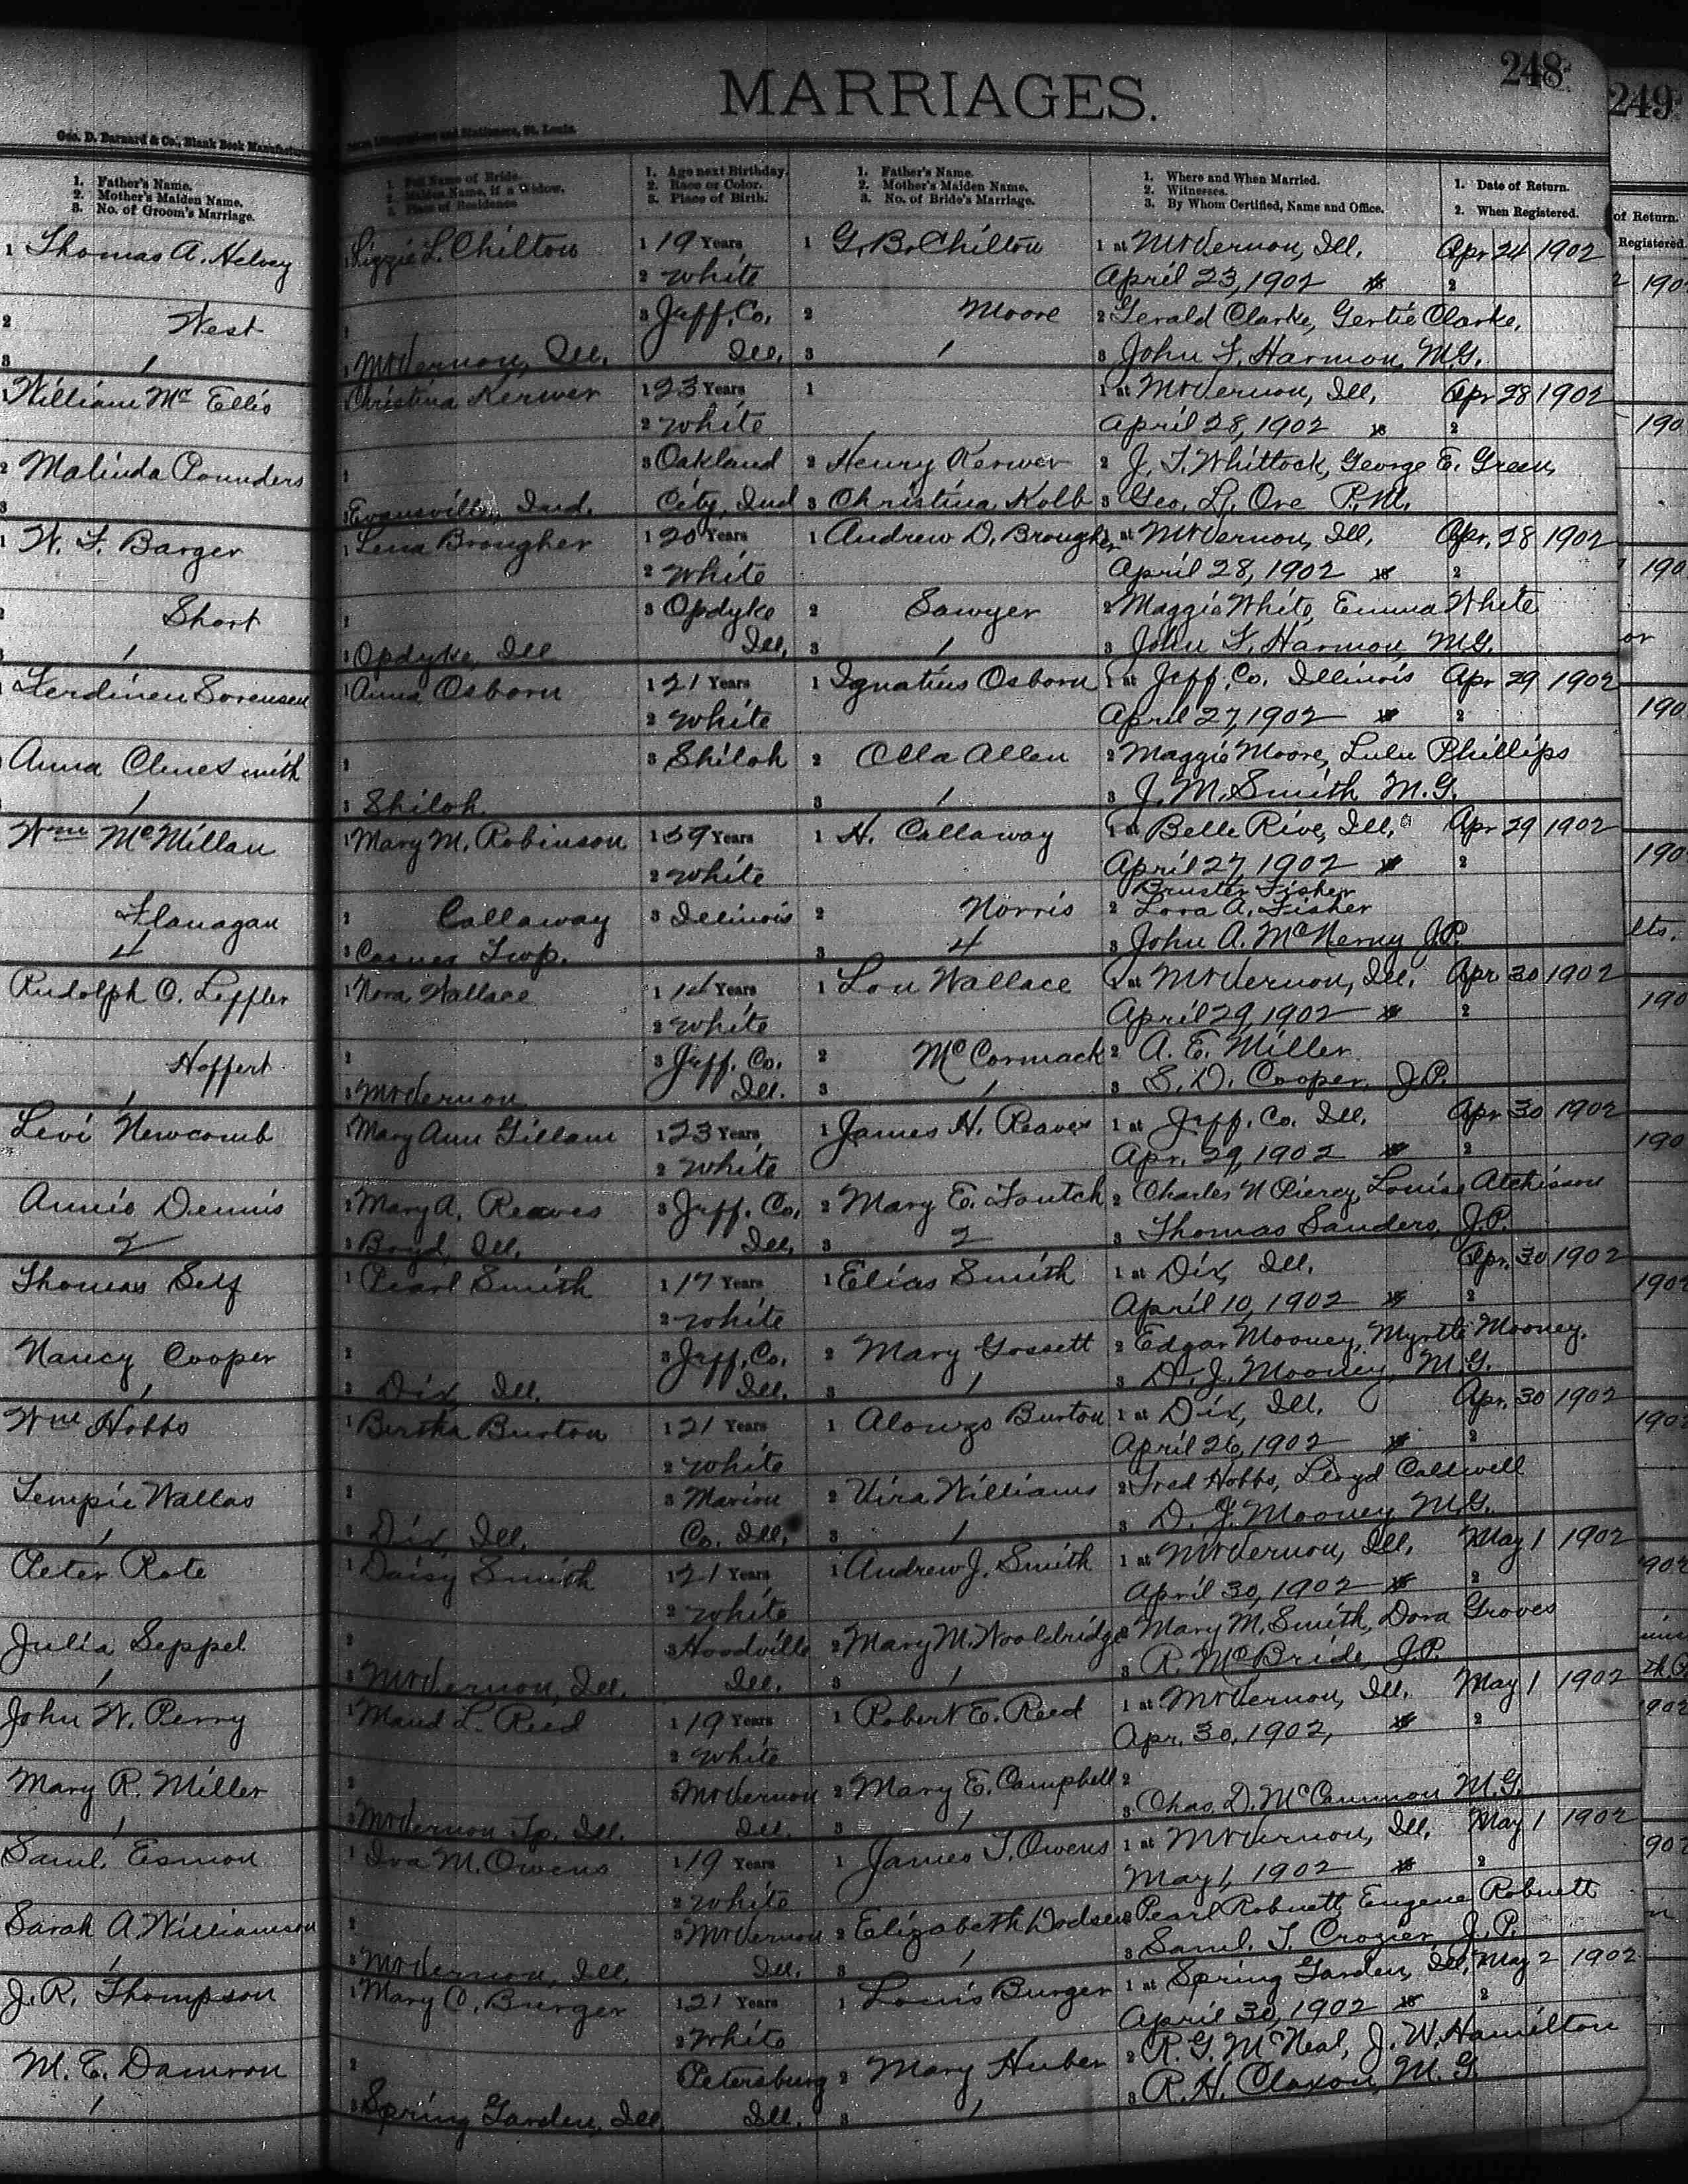 MARRIAGES.
248
249
Geo. D. Barnard & Co., Blank Book Manufacturers
Lithographers and Stationers, St. Louis.
1. Father's Name.
2. Mother's Maiden Name.
3. No. of Groom's Marriage.
1. Full Name of Bride.
2. Maiden Name, if a Widow.
3. Place of Residence
1. Age next Birthday.
2. Race or Color.
3. Place of Birth.
1. Father's Name.
2. Mother's Maiden Name.
3. No. of Bride's Marriage.
1. Where and When Married.
2. Witnesses.
3. By Whom Certified, Name and Office.
1. Date of Return.
2. When Registered.
of Return.
Registered.
1 Thomas A. Helvey
2 West
3 1
1 Lizzie L. Chilton
2
Mt Vernon, Ill.
1 19 Years
2 White
3 Jeff. Co.
Ill.
1 G. B. Chilton
2 Moore
3 1
1 at Mt Vernon, Ill.
April 23, 1902
2 Gerald Clarke, Gertie Clarke.
3 John F. Harmon, M.G.
Apr 24 1902
2
1 William Mc Ellis
2 Malinda Pounders
3
Christina Kerwer
2
3 Evansville, Ind.
1 23 Years
2 White
3 Oakland
City, Ind
1
2 Henry Kerwer
3 Christina Kolb
1 at Mt Vernon, Ill.
April 28, 1902
2 J. T. Whittock, George E. Green,
3 Geo. L. Ore P.M.
Apr 28 1902
2
1 W. F. Barger
2 Short
3 1
1 Lena Brougher
2
3 Opdyke, Ill
1 20 Years
2 White
3 Opdyke
Ill.
1 Andrew D. Brougher
2 Sawyer
3 1
1 at Mt Vernon, Ill.
April 28, 1902
2 Maggie White, Emma White
3 John F. Harmon, M.G.
Apr. 28 1902
2
1 Ferdinen Sorensen
Anna Clinesmith
1
1 Anna Osborn
2
3 Shiloh
1 21 Years
2 White
3 Shiloh
1 Ignatius Osborn
2 Olla Allen
3 1
1 at Jeff. Co. Illinois
April 27, 1902
2 Maggie Moore, Lulu Phillips
3 J. M. Smith M.G.
Apr 29 1902
2
Wm McMillan
Flanagan
4
1 Mary M. Robinson
2 Callaway
3 Casner Twp.
1 39 Years
2 White
3 Illinois
1 H. Callaway
2 Norris
3 4
1 at Belle Rive, Ill.
April 27, 1902
Bruster Fisher
2 Lora A. Fisher
3 John A. McNerny J.P.
Apr 29 1902
2
Rudolph O. Leffler
Hoffert
1
1 Nora Wallace
2
3 Mt Vernon
1 Years
2 White
3 Jeff. Co.
Ill.
1 Lou Wallace
2 McCormack
3 1
1 at Mt Vernon, Ill.
April 29, 1902
2 A. E. Miller
3 S. D. Cooper, J.P.
Apr 30 1902
2
Levi Newcomb
Annie Dennis
2
1 Mary Ann Gillam
2 Mary A. Reaves
3 Boyd, Ill.
1 23 Years
2 White
3 Jeff. Co.
Ill.
1 James H. Reaves
2 Mary E. Foutch
3 2
1 at Jeff. Co. Ill.
Apr. 29, 1902
2 Charles N Piercy, Louise Atchisson
3 Thomas Sanders, J.P.
Apr 30 1902
2
Thomas Self
Nancy Cooper
1
1 Pearl Smith
2
3 Dix, Ill.
1 17 Years
2 White
3 Jeff. Co.
Ill.
1 Elias Smith
2 Mary Gossett
3 1
1 at Dix, Ill.
April 10, 1902
2 Edgar Mooney, Myrtle Mooney.
3 D. J. Mooney, M.G.
Apr. 30 1902
2
Wm Hobbs
Tempie Wallas
1
1 Bertha Burton
2
3 Dix, Ill.
1 21 Years
2 White
3 Marion
Co. Ill.
1 Alonzo Burton
2 Vira Williams
3 1
1 at Dix, Ill.
April 26, 1902
2 Fred Hobbs, Lloyd Caldwell
3 D. J. Mooney M.G.
Apr. 30 1902
2
Peter Rote
Julia Seppel
1
1 Daisy Smith
2
3 Mt Vernon, Ill.
1 21 Years
2 White
3 Hoodville
Ill.
1 Andrew J. Smith
2 Mary M. Wooldridge
3 1
1 at Mt Vernon, Ill.
April 30, 1902
2 Mary M. Smith, Dora Groves
3 R. McBride, J.P.
May 1 1902
2
John W. Perry
Mary R. Miller
1
1 Maud L. Reed
2
3 Mt Vernon Tp. Ill.
1 19 Years
2 White
3 Mt Vernon
Ill.
1 Robert E. Reed
2 Mary E. Campbell
3 1
1 at Mt Vernon, Ill.
Apr. 30, 1902,
2
3 Chas. D. McCammon M.G.
May 1 1902
2
Saml. Esmon
Sarah A Williamson
1
1 Iva M. Owens
2
3 Mt Vernon, Ill.
1 19 Years
2 White
3 Mt Vernon
Ill.
1 James T. Owens
2 Elizabeth Dodson
3 1
1 at Mt Vernon, Ill.
May 1, 1902
2 Pearl Robnett Eugene Robnett
3 Saml. T. Crozier J.P.
May 1 1902
2
J. R. Thompson
M. E. Damron
1
1 Mary C. Burger
2
3 Spring Garden, Ill.
1 21 Years
2 White
Petersburg
Ill.
1 Louis Burger
2 Mary Huber
3 1
1 at Spring Garden, Ill.
April 30, 1902
2 R. G. McNeal, J. W. Hamilton
3 R. H. Claxon, M.G.
May 2 1902
2